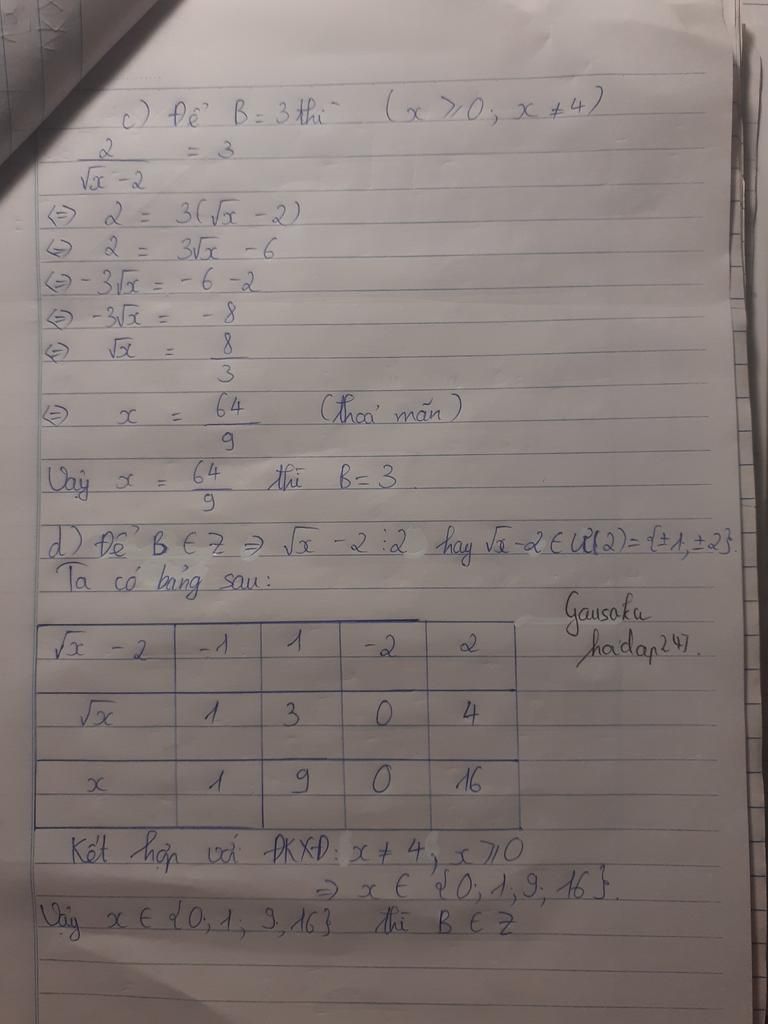 c) Để B = 3 thì (x ⩾ 0; x ≠ 4)
2/(√x - 2) = 3
<=> 2 = 3(√x - 2)
<=> 2 = 3√x - 6
<=> -3√x = -6 - 2
<=> -3√x = -8
<=> √x = 8/3
<=> x = 64/9 (thoả mãn)
Vậy x = 64/9 thì B = 3
d) Để B ∈ Z => √x - 2 ⋮ 2 hay √x - 2 ∈ Ư(2) = {±1, ±2}.
Ta có bảng sau:
Gausaku
hadap247.
√x - 2 -1 1 -2 2
√x 1 3 0 4
x 1 9 0 16
Kết hợp với ĐKXĐ: x ≠ 4; x ⩾ 0
=> x ∈ {0; 1; 9; 16}.
Vậy x ∈ {0; 1; 9; 16} thì B ∈ Z